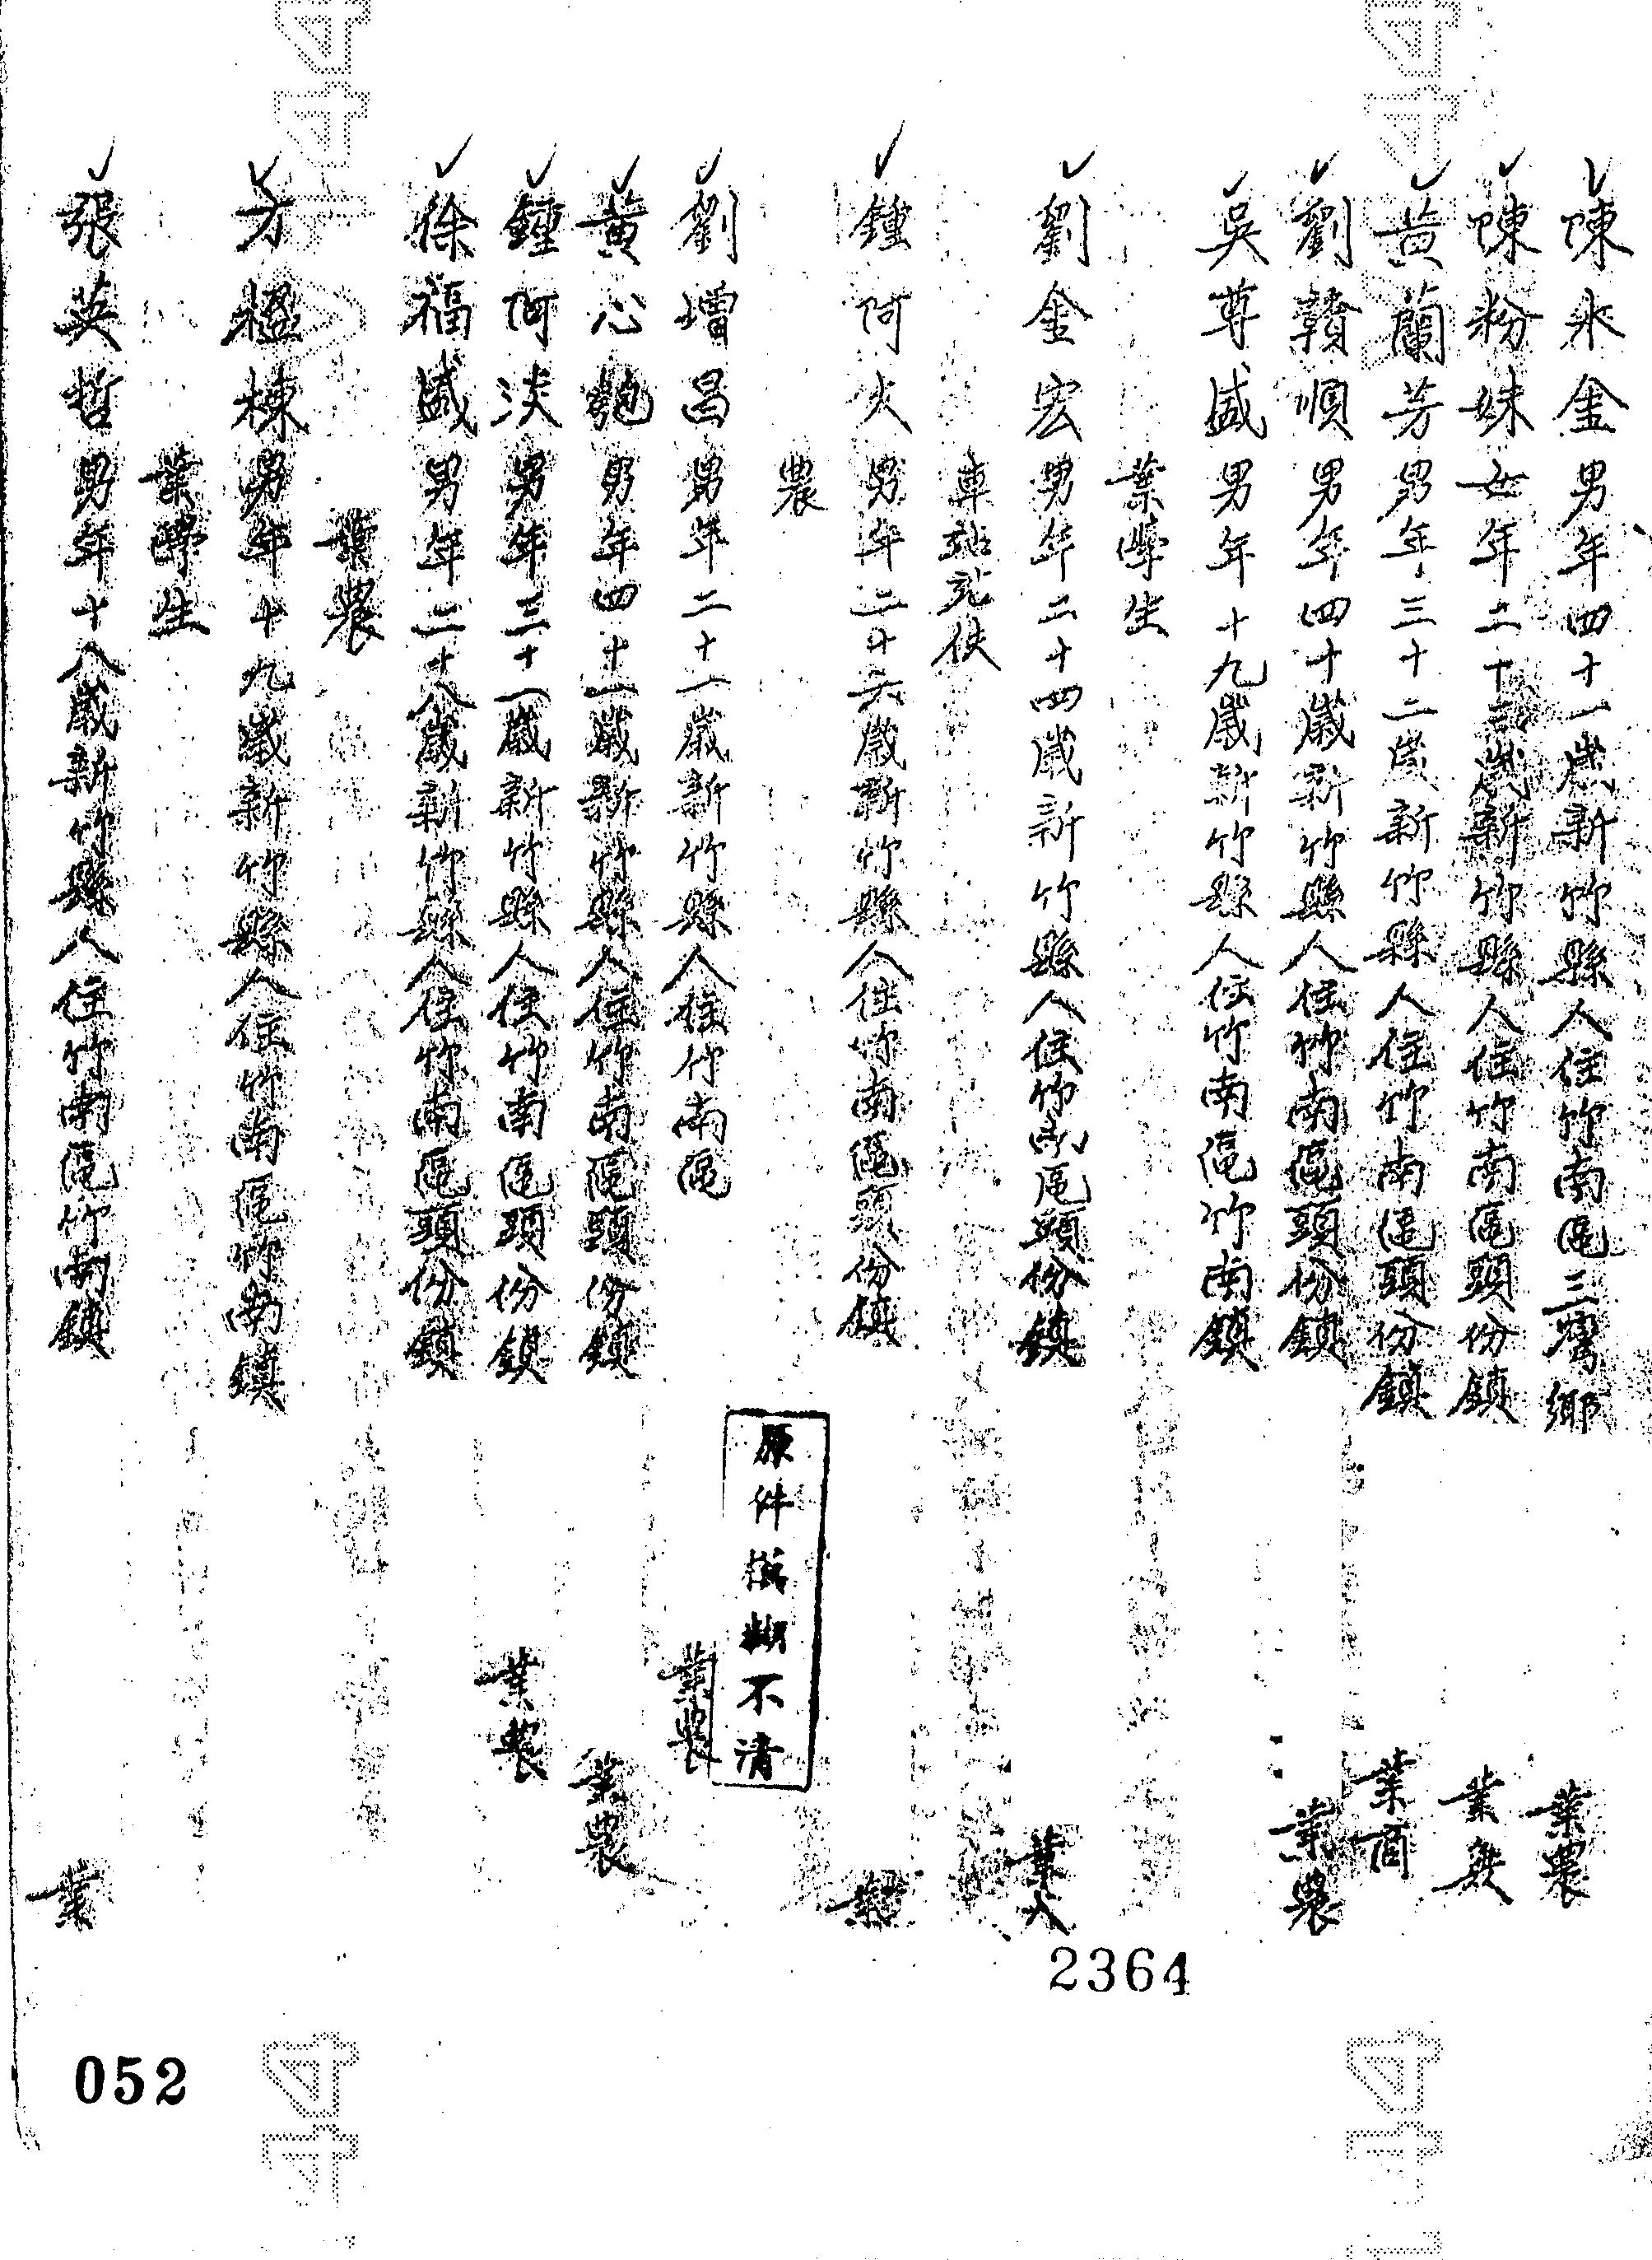 陳永金男年四十一歲新竹縣人住竹南區三灣鄉 業農
陳粉妹女年二十三歲新竹縣人住竹南區頭份鎮 業無
黃蘭芳男年三十二歲新竹縣人住竹南區頭份鎮 業商
劉贛順男年四十歲新竹縣人住竹南區頭份鎮 業農
吳尊盛男年十九歲新竹縣人住竹南區竹南鎮
業學生
劉金宏男年二十四歲新竹縣人住竹南區頭份鎮 業火
車站站伕
鍾阿火男年二十六歲新竹縣人住竹南區頭份鎮 業
農
劉增昌男年二十一歲新竹縣人住竹南區 業農
黃心匏男年四十一歲新竹縣人住竹南區頭份鎮 業農
鍾阿淡男年三十一歲新竹縣人住竹南區頭份鎮 業農
徐福盛男年二十八歲新竹縣人住竹南區頭份鎮
業農
方楹棟男年十九歲新竹縣人住竹南區竹南鎮
業學生
張英哲男年十八歲新竹縣人住竹南區竹南鎮 業
原件模糊不清
2364
052